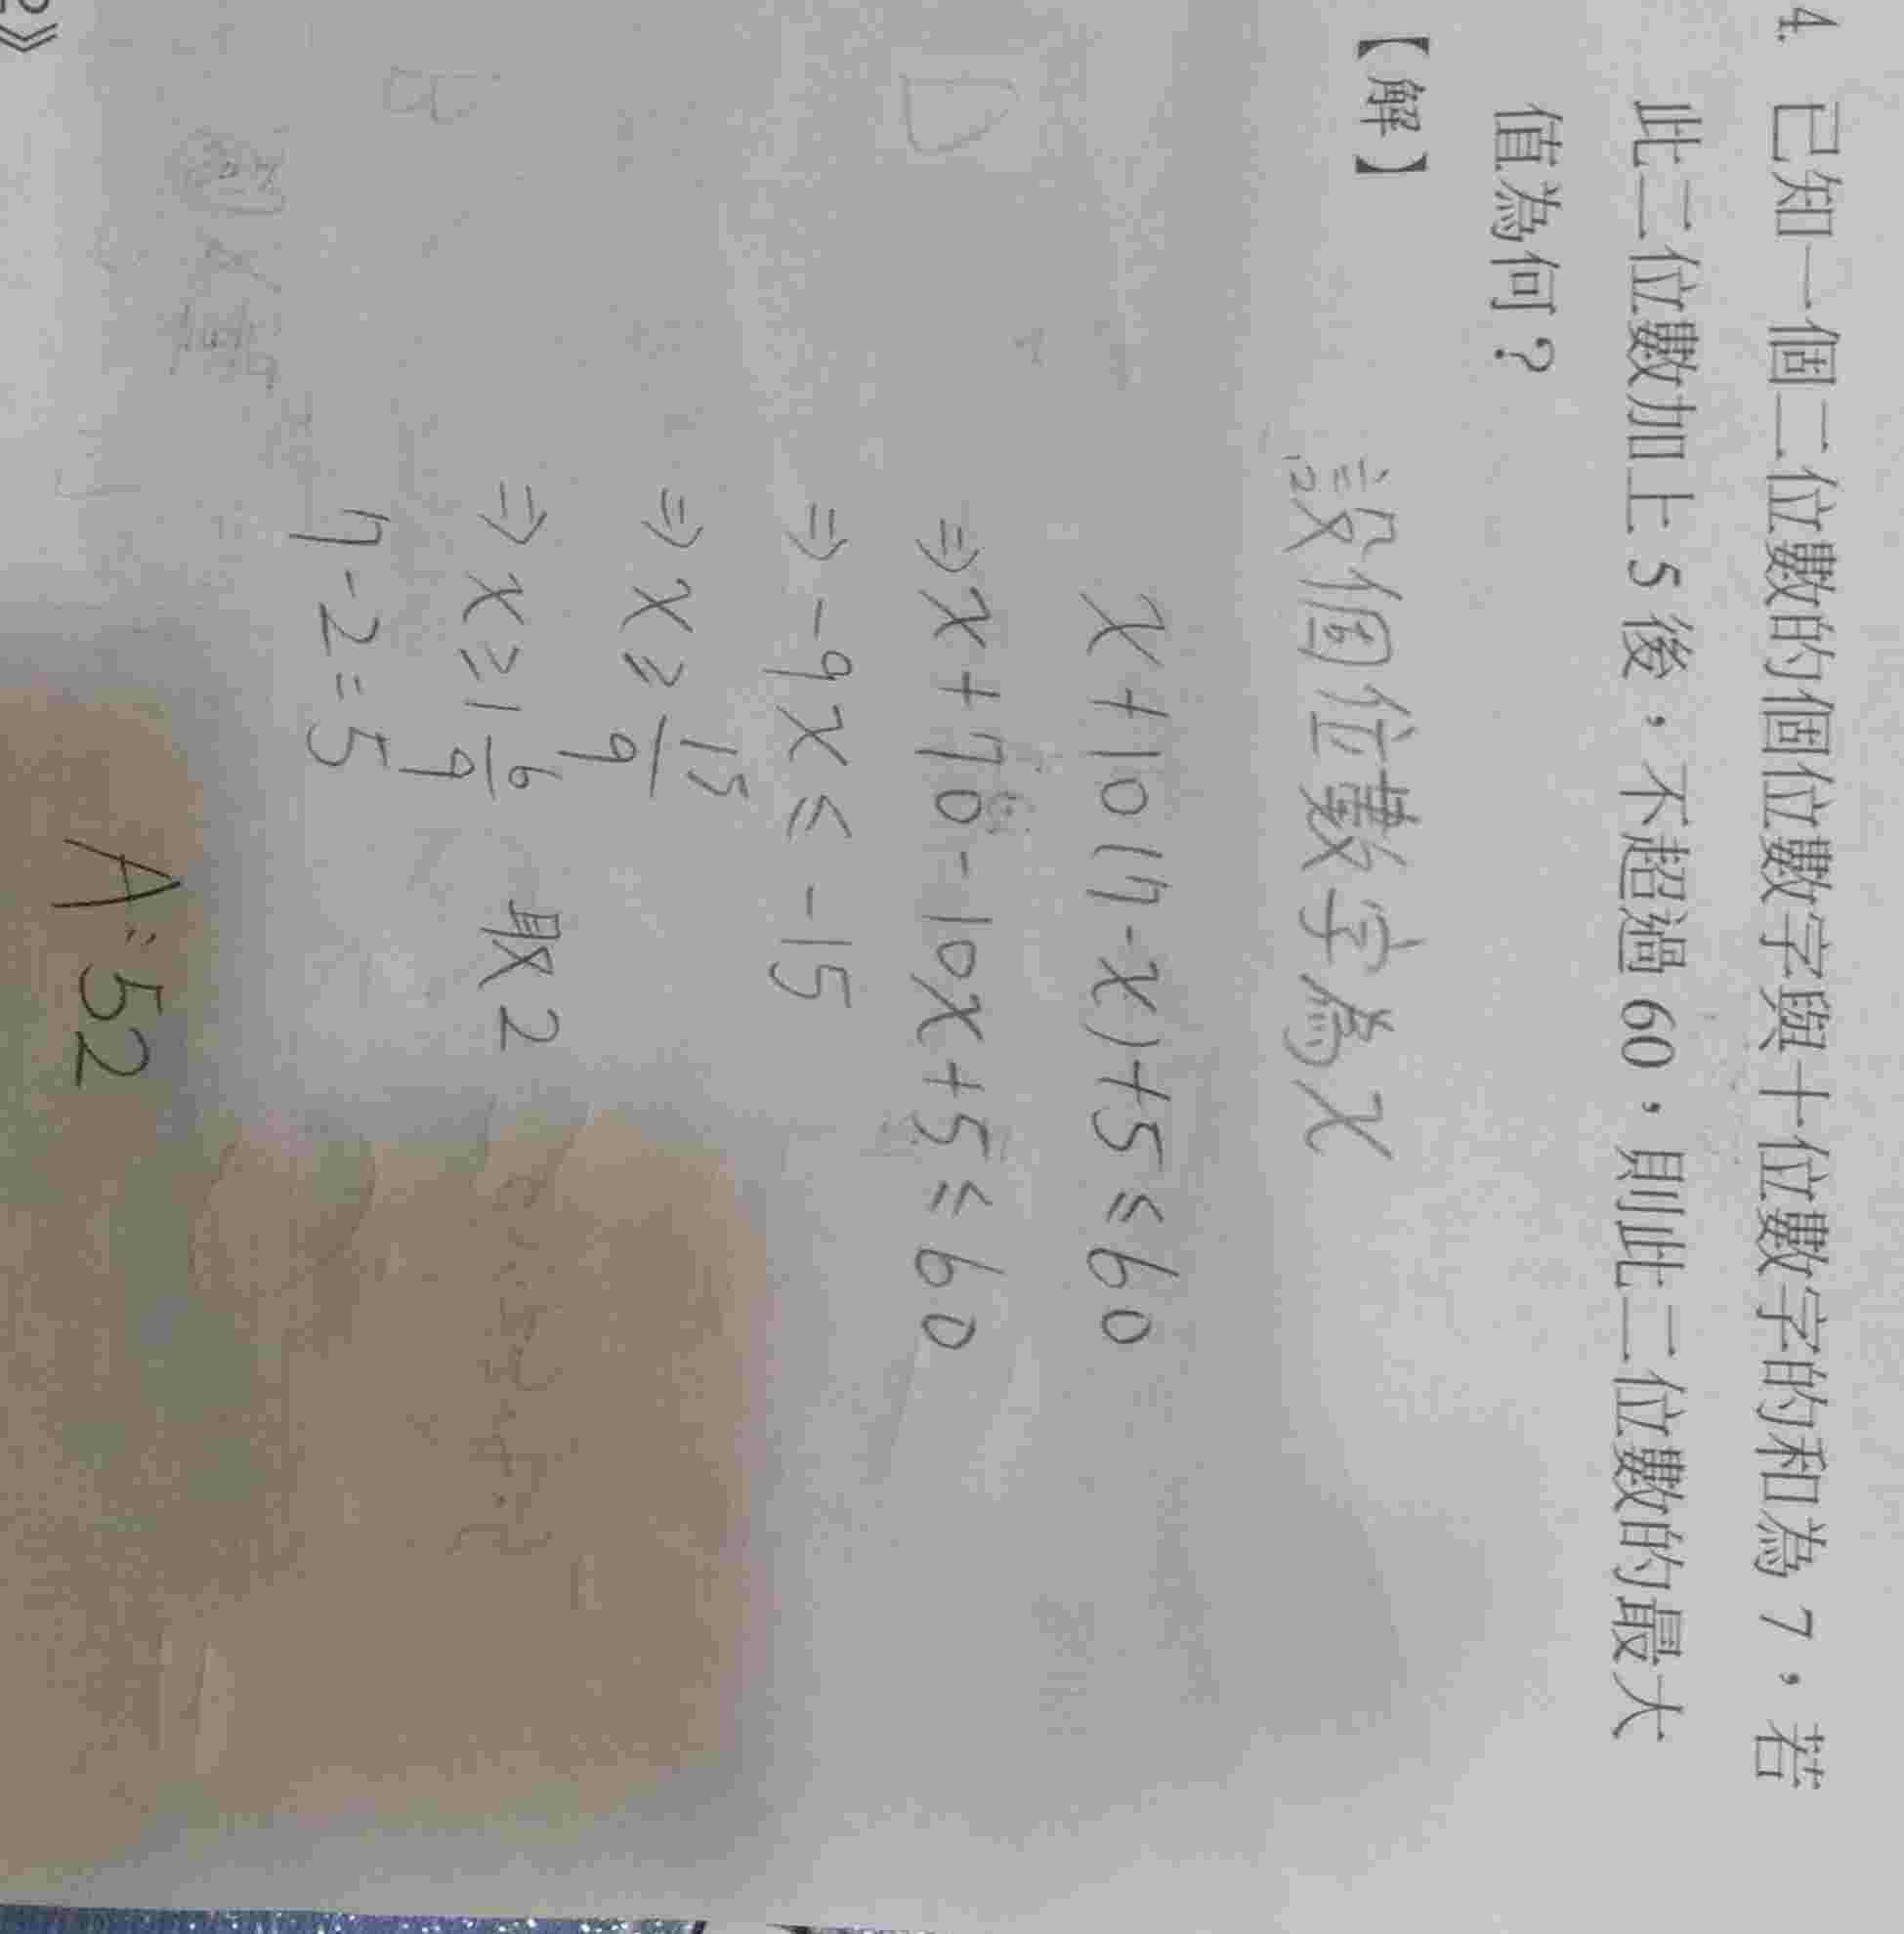 4. 已知一個二位數的個位數字與十位數字的和為 7，若
此二位數加上 5 後，不超過 60，則此二位數的最大
值為何？
【解】
設個位數字為x
x+10(7-x)+5≤60
⇒x+70-10x+5≤60
⇒-9x≤-15
⇒x≥15/9
⇒x≥1 6/9 取2
7-2=5
A:52